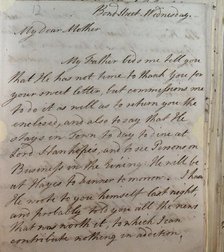 Bond Street Wednesday.
My Dear Mother
My Father bids me tell you
that He has not time to thank you for
your sweet letter, but commissions me
to do it as well as to return you the
enclosed, and also to say that He
stays in Town to day to dine at
Lord Stanhopes, and to see Persons on
Business in the Evening. He will be
at Hayes to dinner to morrow. I hear
He wrote to you himself last night
and probably told you all the news
that was worth it, to which I can
contribute nothing in addition,